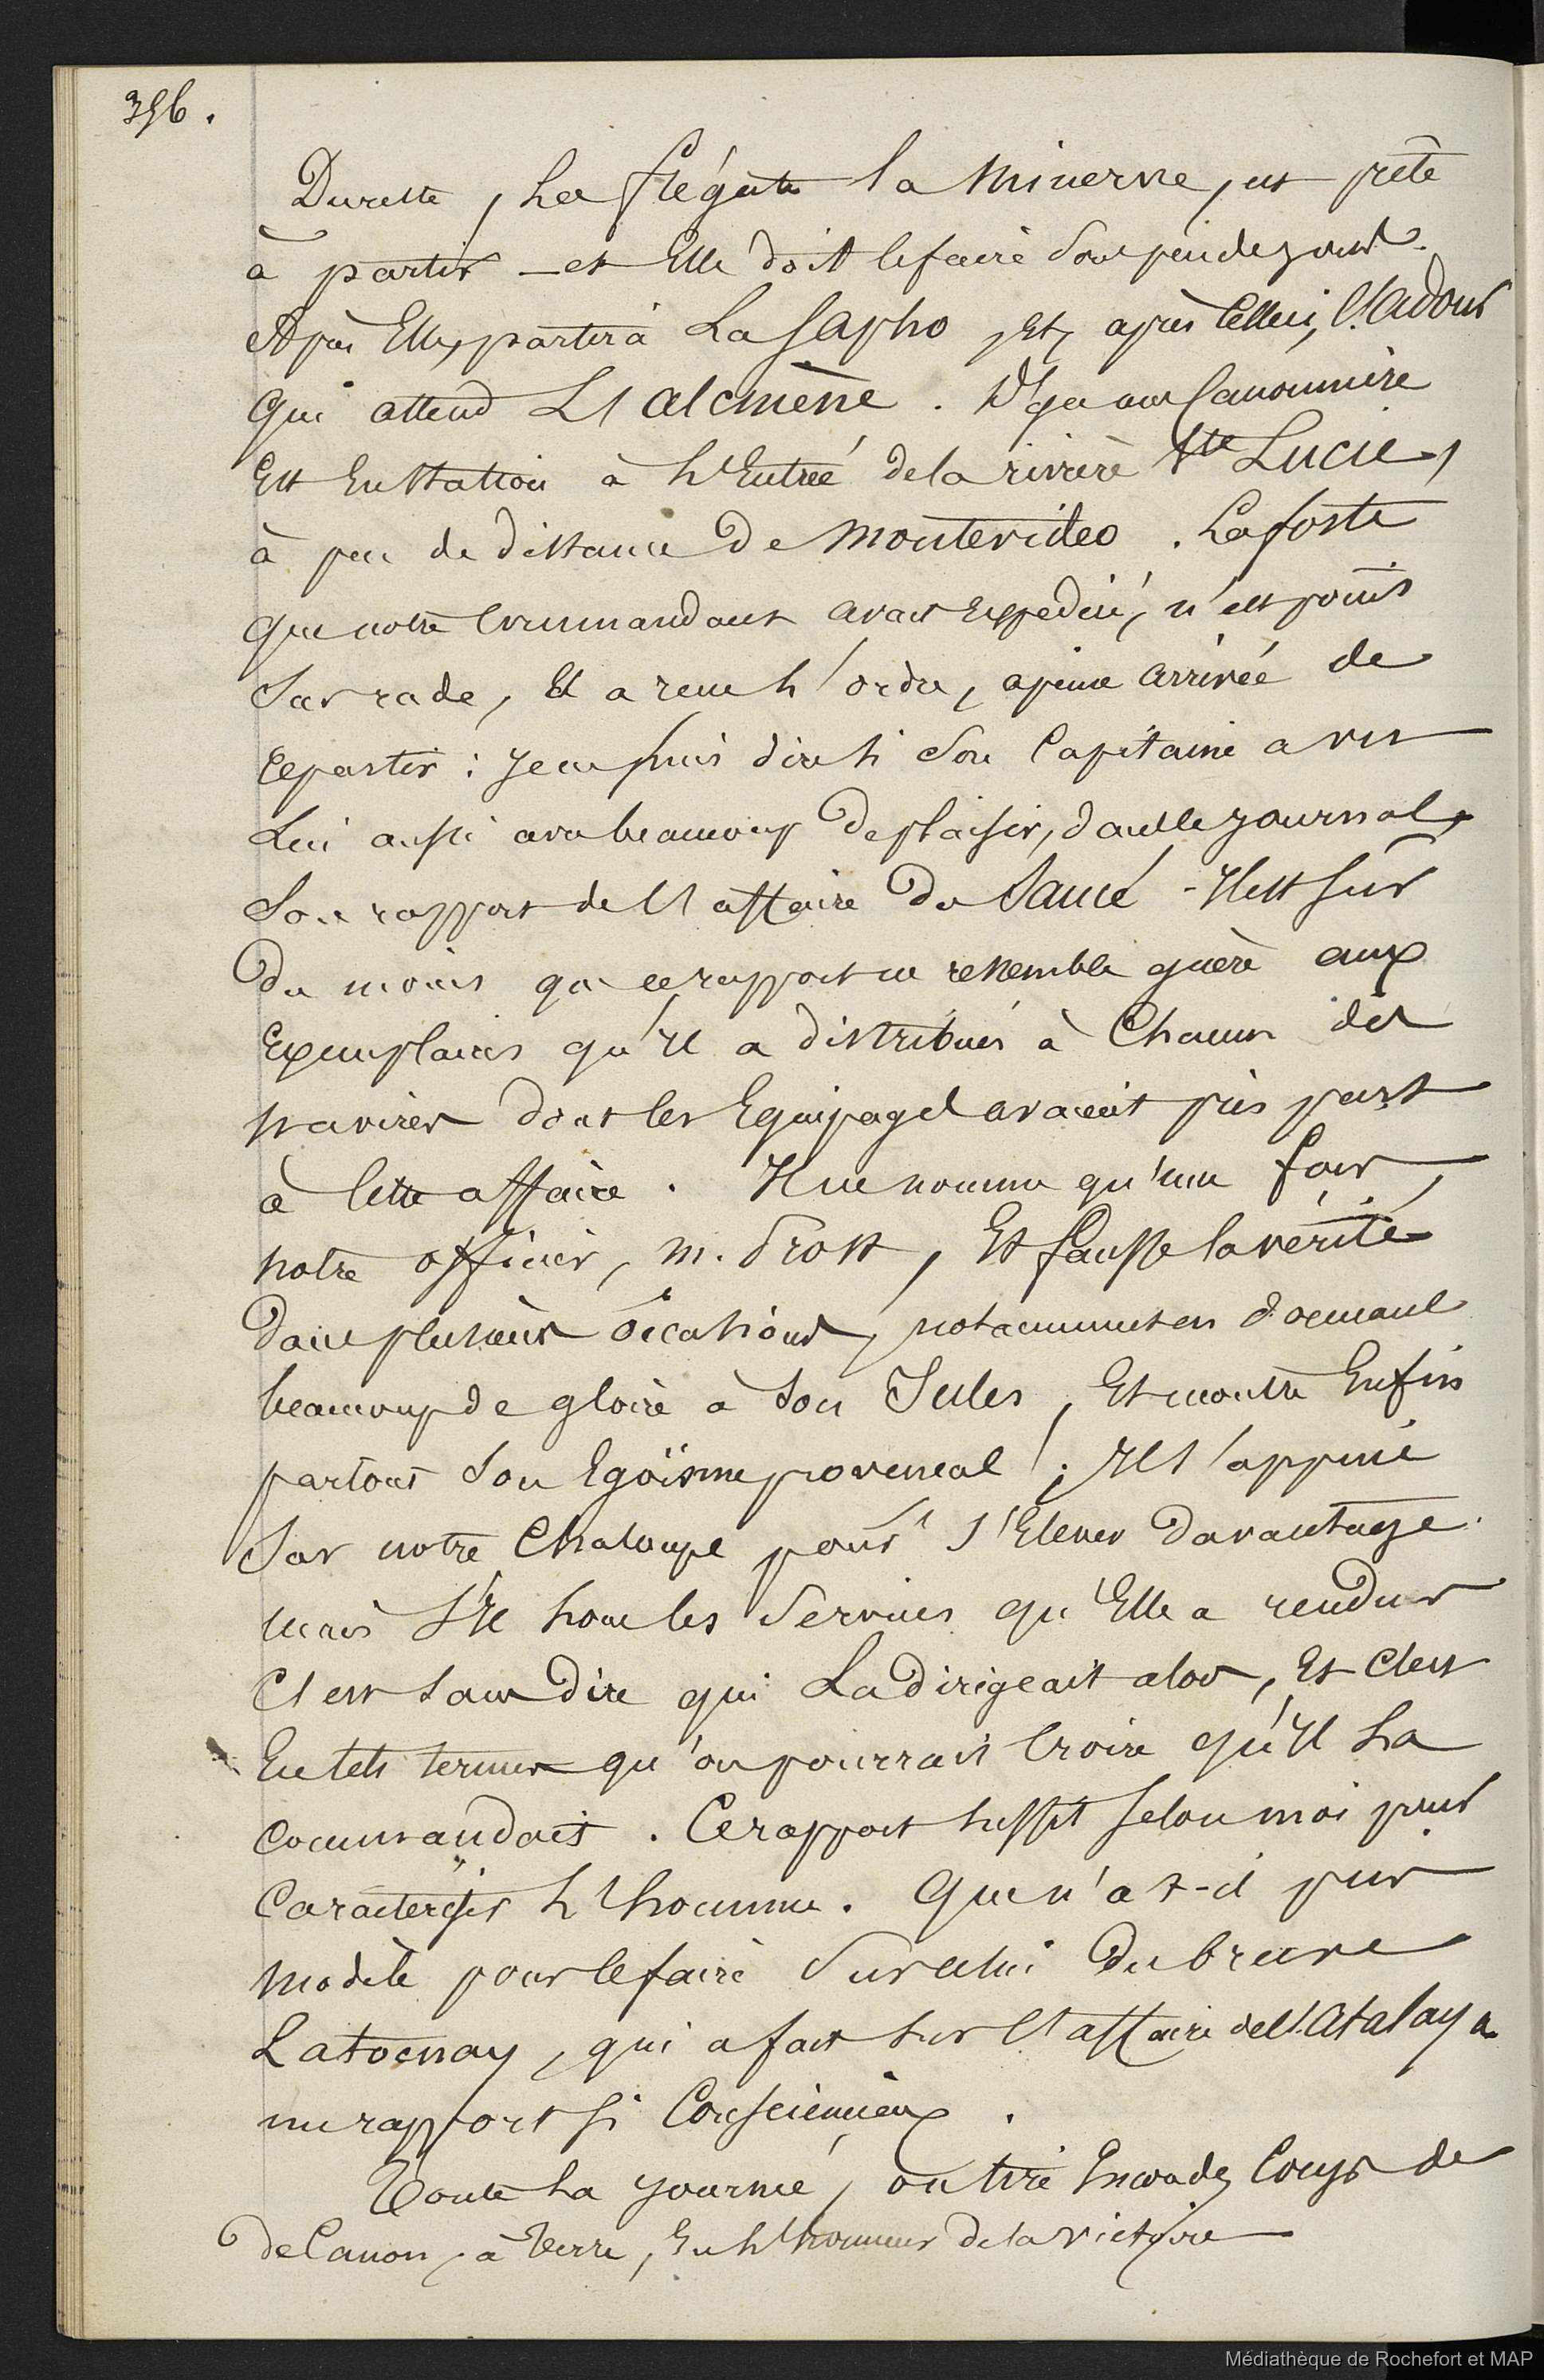 396.
Dureste, La frégate la Minerve, est prête
à partir - et Elle doit le faire sous peu de jours.
Après Elle, partira La Sapho, Et, après Celleci, l'Adour
qui attend L'Alcmène. Il y a une Canonnière
Est En Station à L'Entrée de la rivière Ste Lucie,
à peu de distance De Montevideo. La forte
que notre Commandant avait Expédiée, n'est point
Sur rade, Et a reçu L'ordre, apeine arrivée de
repartir : Je ne puis dire si Son Capitaine a vu
Lui aussi avec beaucoup De plaisir, dans le journal,
Son rapport de l'affaire Du Saucé - Il est sûr
Du moins que ce rapport ne ressemble guère aux
Exemplaires qu'Il a distribués à Chacun des
navires dont les Equipages avaient pris part
à Cette affaire. Il ne nomme qu'une fois,
notre officier, M. Prost, Et fausse la vérité
Dans plusieurs occasions, notamment en donnant
beaucoup de gloire à Son Jules, Et montre Enfin
partout Son Egoïsme provencal! ; Il s'appuie
Sur notre Chaloupe pour s'Elever Davantage.
Mais S'Il loue les Services qu'Elle a rendus
C'est sans Dire qui La Dirigeait alors, Et C'est
En tels termes qu'on pourrait Croire qu'Il La
Commandait. Ce rapport suffit selon moi pour
Caractériser L'homme. Que n'a-t-il pris
Modèle pour le faire Sur celui Du brave
Latocnay, qui a fait sur l'affaire de l'Atalaya
un rapport si Consciencieux.
Toute La journée, on tire Encore des Coups de
De Canon, à Terre, En L'honneur De la victoire
Médiathèque de Rochefort et MAP